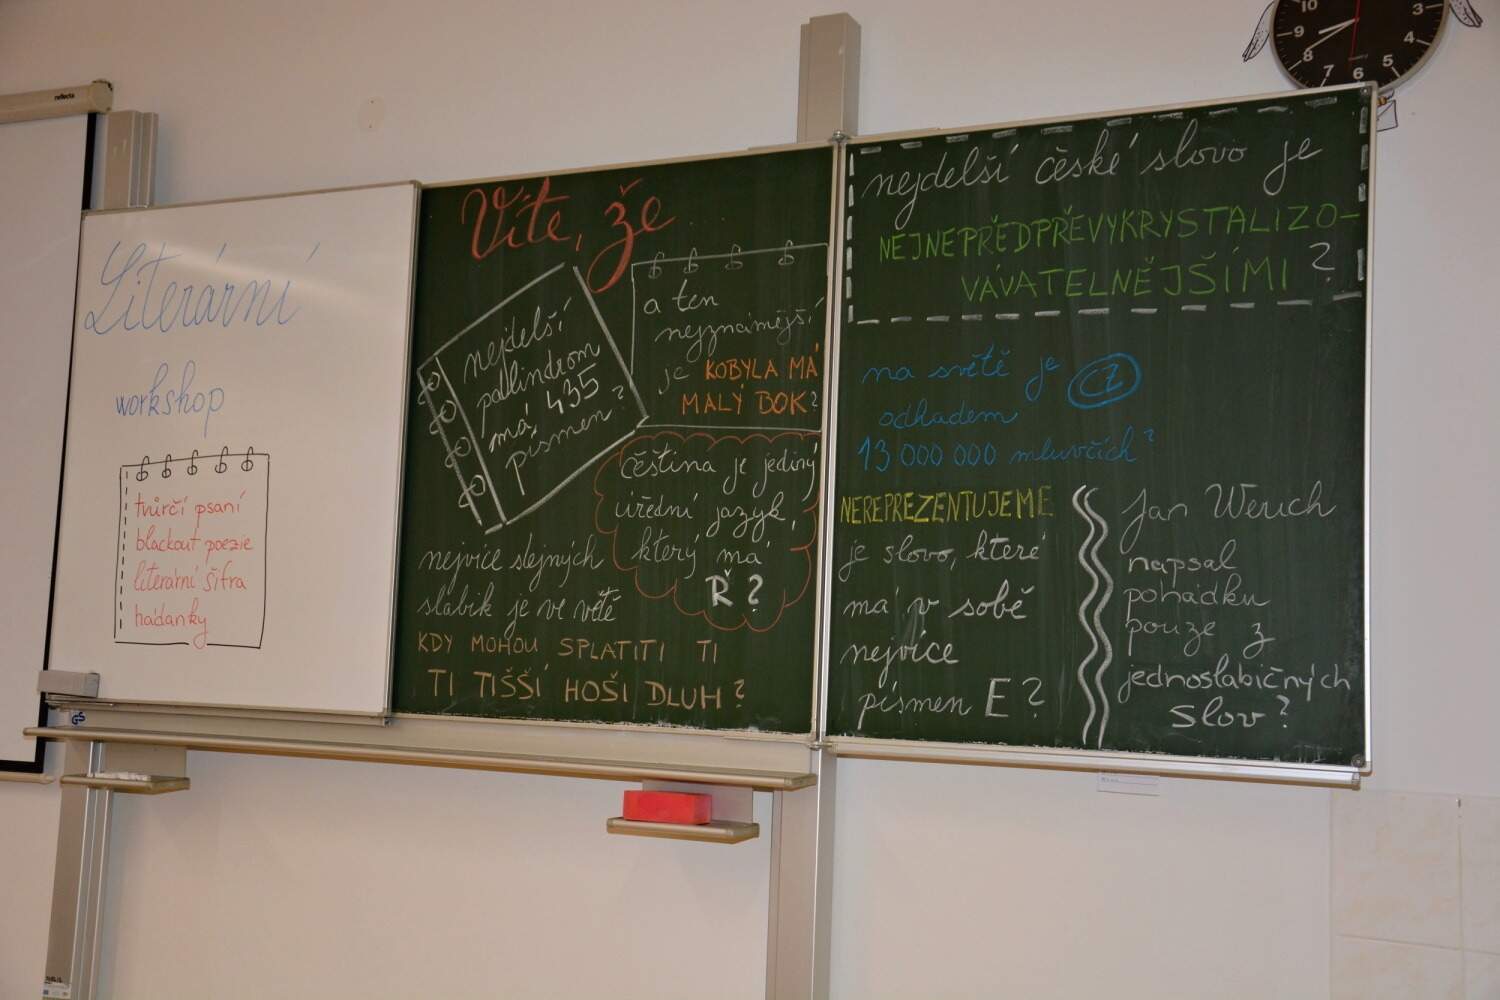 reflecta
Literární
workshop
tvůrčí psaní
blackout poezie
literární šifra
hádanky
Víte, že...
nejdelší
palindrom
má 435
písmen?
a ten
nejznámější
je KOBYLA MÁ
MALÝ BOK?
čeština je jediný
úřední jazyk,
který má
Ř?
nejvíce stejných
slabik je ve větě
KDY MOHOU SPLATITI TI
TI TIŠŠÍ HOŠI DLUH?
nejdelší české slovo je
NEJNEPŘEDPŘEVYKRYSTALIZO-
VÁVATELNĚJŠÍMI?
na světě je
odhadem
13 000 000 mluvčích?
NEREPREZENTUJEME
je slovo, které
má v sobě
nejvíce
písmen E?
Jan Werich
napsal
pohádku
pouze z
jednoslabičných
slov?
10
9
8
7
6
5
4
3
GS